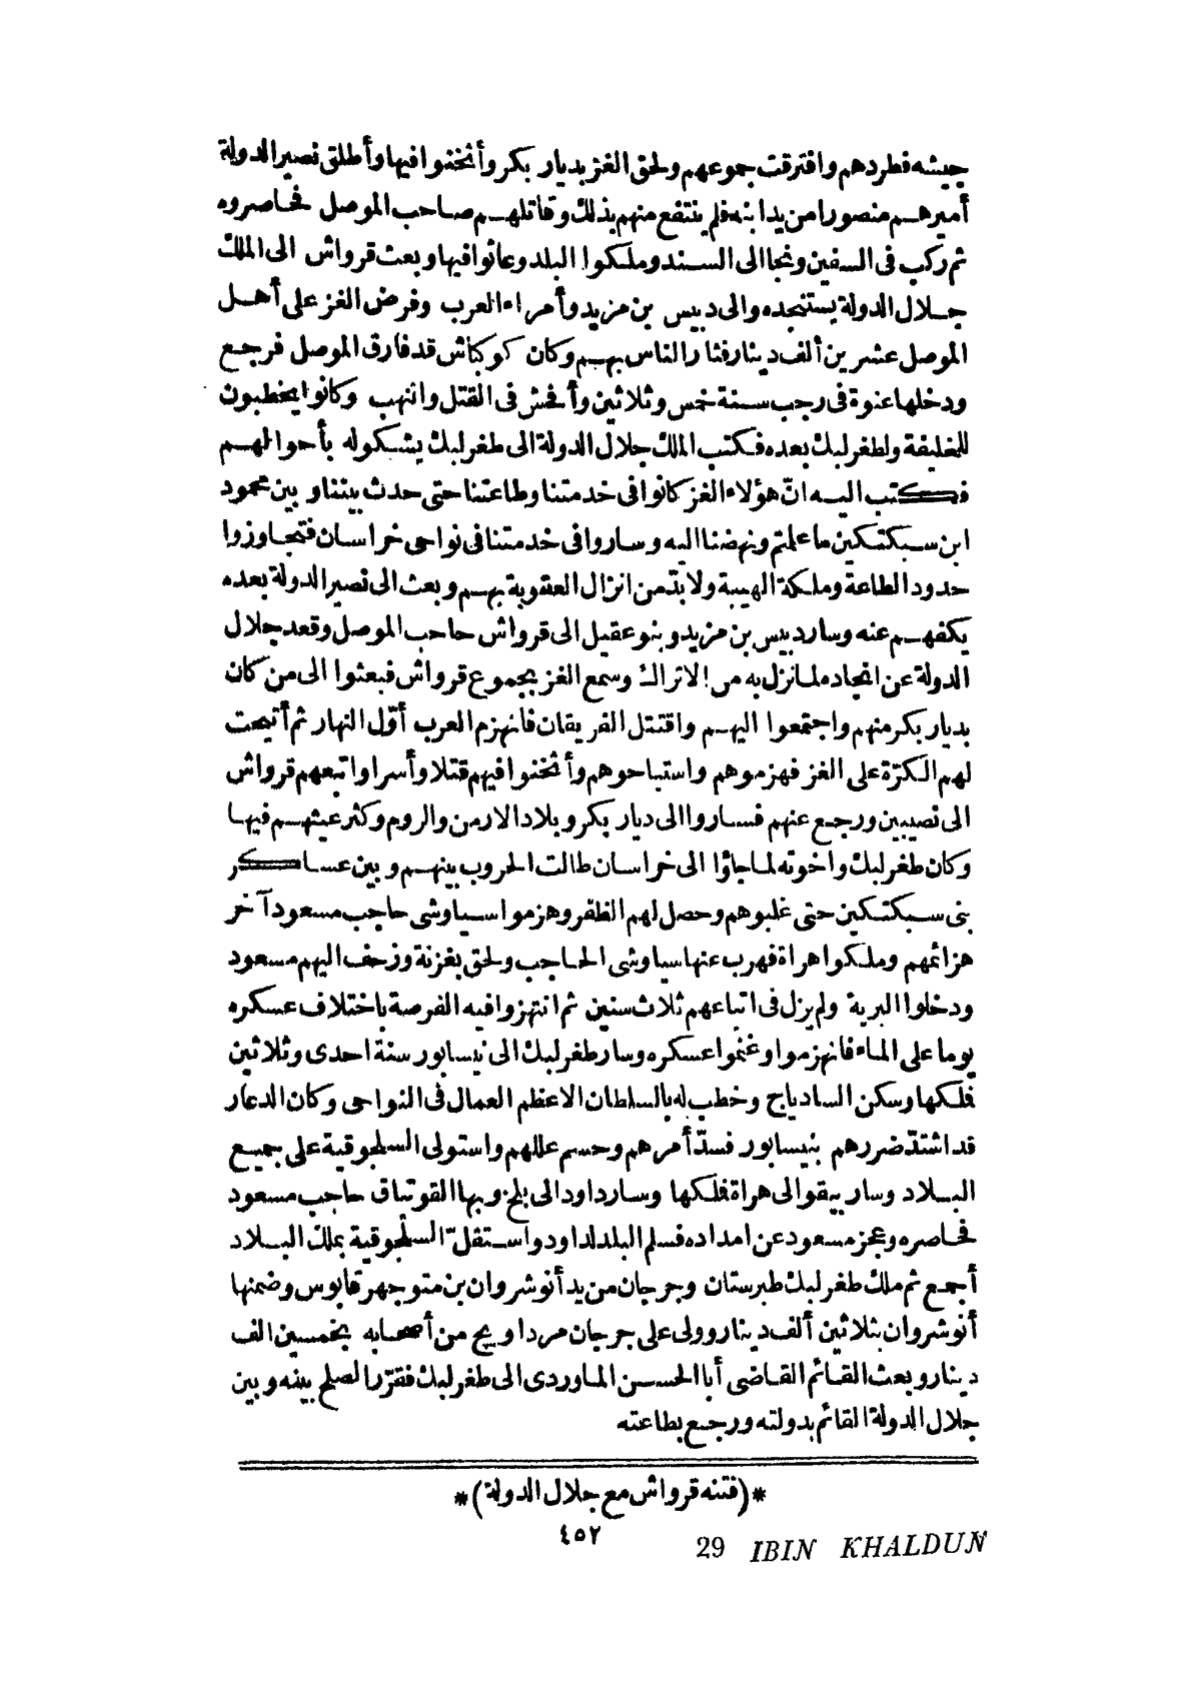 جيشه فطردهم وافترقت جموعهم ولحق الغز بديار بكر وأثخنوا فيها وأطلق نصير الدولة
أميرهم منصورا من يد ابنه فلم ينتفع منهم بذلك وقاتلهم صاحب الموصل فحاصروه
ثم ركب فى السفين ونجا الى السند وملكوا البلد وعاثوا فيها وبعث قرواش الى الملك
جلال الدولة يستنجده والى دبيس بن مزيد وأمراء العرب وفرض الغز على أهل
الموصل عشرين ألف دينار فثار الناس بهم وكان كوكتاش قد فارق الموصل فرجع
ودخلها عنوة فى رجب سنة خمس وثلاثين وأفحش فى القتل والنهب وكانوا يخطبون
للخليفة ولطغرلبك بعده فكتب الملك جلال الدولة الى طغرلبك يشكوله بأحوالهم
فكتب اليه انّ هؤلاء الغز كانوا فى خدمتنا وطاعتنا حتى حدث بيننا و بين محمود
ابن سبكتكين ما علمتم ونهضنا اليه وساروا فى خدمتنا فى نواحى خراسان فتجاوزوا
حدود الطاعة وملكة الهيبة ولا بدّ من انزال العقوبة بهم وبعث الى نصير الدولة بعده
يكفهم عنه وسار دبيس بن مزيد وبنو عقيل الى قرواش حاجب الموصل وقعد جلال
الدولة عن انجاده لما نزل به من الاتراك وسمع الغز بجموع قرواش فبعثوا الى من كان
بديار بكر منهم واجتمعوا اليهم واقتتل الفريقان فانهزم العرب أوّل النهار ثم أتيحت
لهم الكرّة على الغز فهزموهم واستباحوهم وأثخنوا فيهم قتلا وأسرا واتبعهم قرواش
الى نصيبين ورجع عنهم فساروا الى ديار بكر وبلاد الارمن والروم وكثر عيثهم فيها
وكان طغرلبك واخوته لما جاؤا الى خراسان طالت الحروب بينهم وبين عساكر
بنى سبكتكين حتى غلبوهم وحصل لهم الظفر وهزموا سياوشى حاجب مسعود آخر
هزائمهم وملكوا هراة فهرب عنها سياوشى الحاجب ولحق بغزنة وزحف اليهم مسعود
ودخلوا البرية ولم يزل فى اتباعهم ثلاث سنين ثم انتهزوا فيه الفرصة باختلاف عسكره
يوما على الماء فانهزموا وغنموا عسكره وسار طغرلبك الى نيسابور سنة احدى وثلاثين
فملكها وسكن السادياج وخطب له بالسلطان الاعظم العمال فى النواحى وكان الدعار
قد اشتدّ ضررهم بنيسابور فسدّ أمرهم وحسم عللهم واستولى السلجوقية على جميع
البلاد وسار بيقو الى هراة فملكها وسار داود الى بلخ وبها القوتباق حاجب مسعود
فحاصره وعجز مسعود عن امداده فسلم البلد لداود واستقلّ السلجوقية بملك البلاد
أجمع ثم ملك طغرلبك طبرستان وجرجان من يد أنوشروان بن متوجهر قابوس وضمنها
أنوشروان بثلاثين ألف دينار وولى على جرجان مرداويج من أصحابه بخمسين الف
دينار وبعث القائم القاضى أبا الحسن الماوردى الى طغرلبك فقرّر الصلح بينه وبين
جلال الدولة القائم بدولته ورجع بطاعته
*(فتنه قرواش مع جلال الدولة)*
٤٥٢
29 IBIN KHALDUN